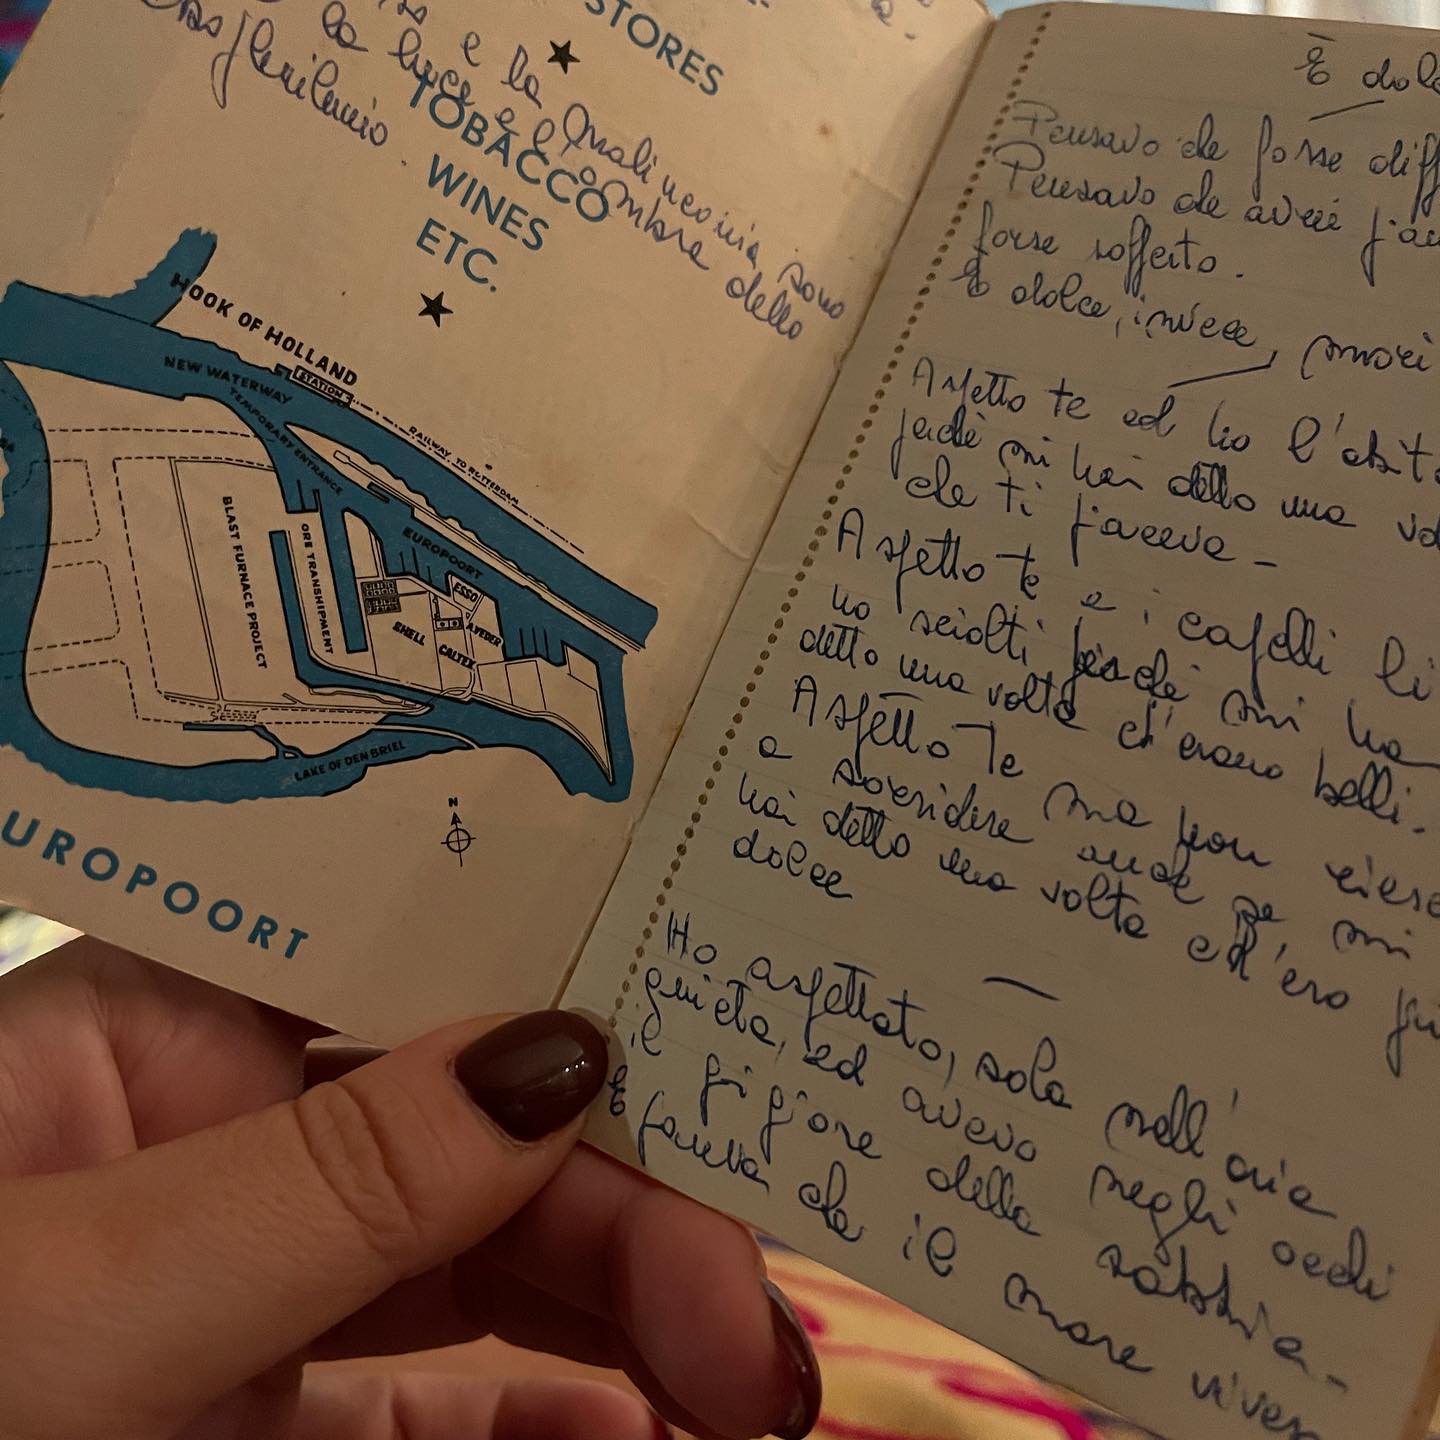 STORES
★
e la malinconia sono
la luce e l'ombra dello
TOBACCO
WINES
ETC.
★
HOOK OF HOLLAND
STATION
NEW WATERWAY
TEMPORARY ENTRANCE
RAILWAY TO ROTTERDAM
BLAST FURNACE PROJECT
ORE TRANSHIPMENT
EUROPOORT
ESSO
SHELL
CALTEX
LAKE OF DEN BRIEL
N
UROPOORT
È dolc
Pensavo che fosse diff
Pensavo che avrei
forse sofferto.
È dolce, invece, mori
Aspetto te ed ho l'abit
perchè mi hai detto una vol
che ti piaceva -
Aspetto te e i capelli li
ho sciolti perchè mi ha
detto una volta ch'erano belli.
Aspetto te ma non riesc
a sorridere anche se mi
hai detto una volta ch'ero più
dolce
Ho aspettato, sola nell'aria
quieta, ed avevo negli occhi
il grigiore della sabbia -
E pareva che il mare vives